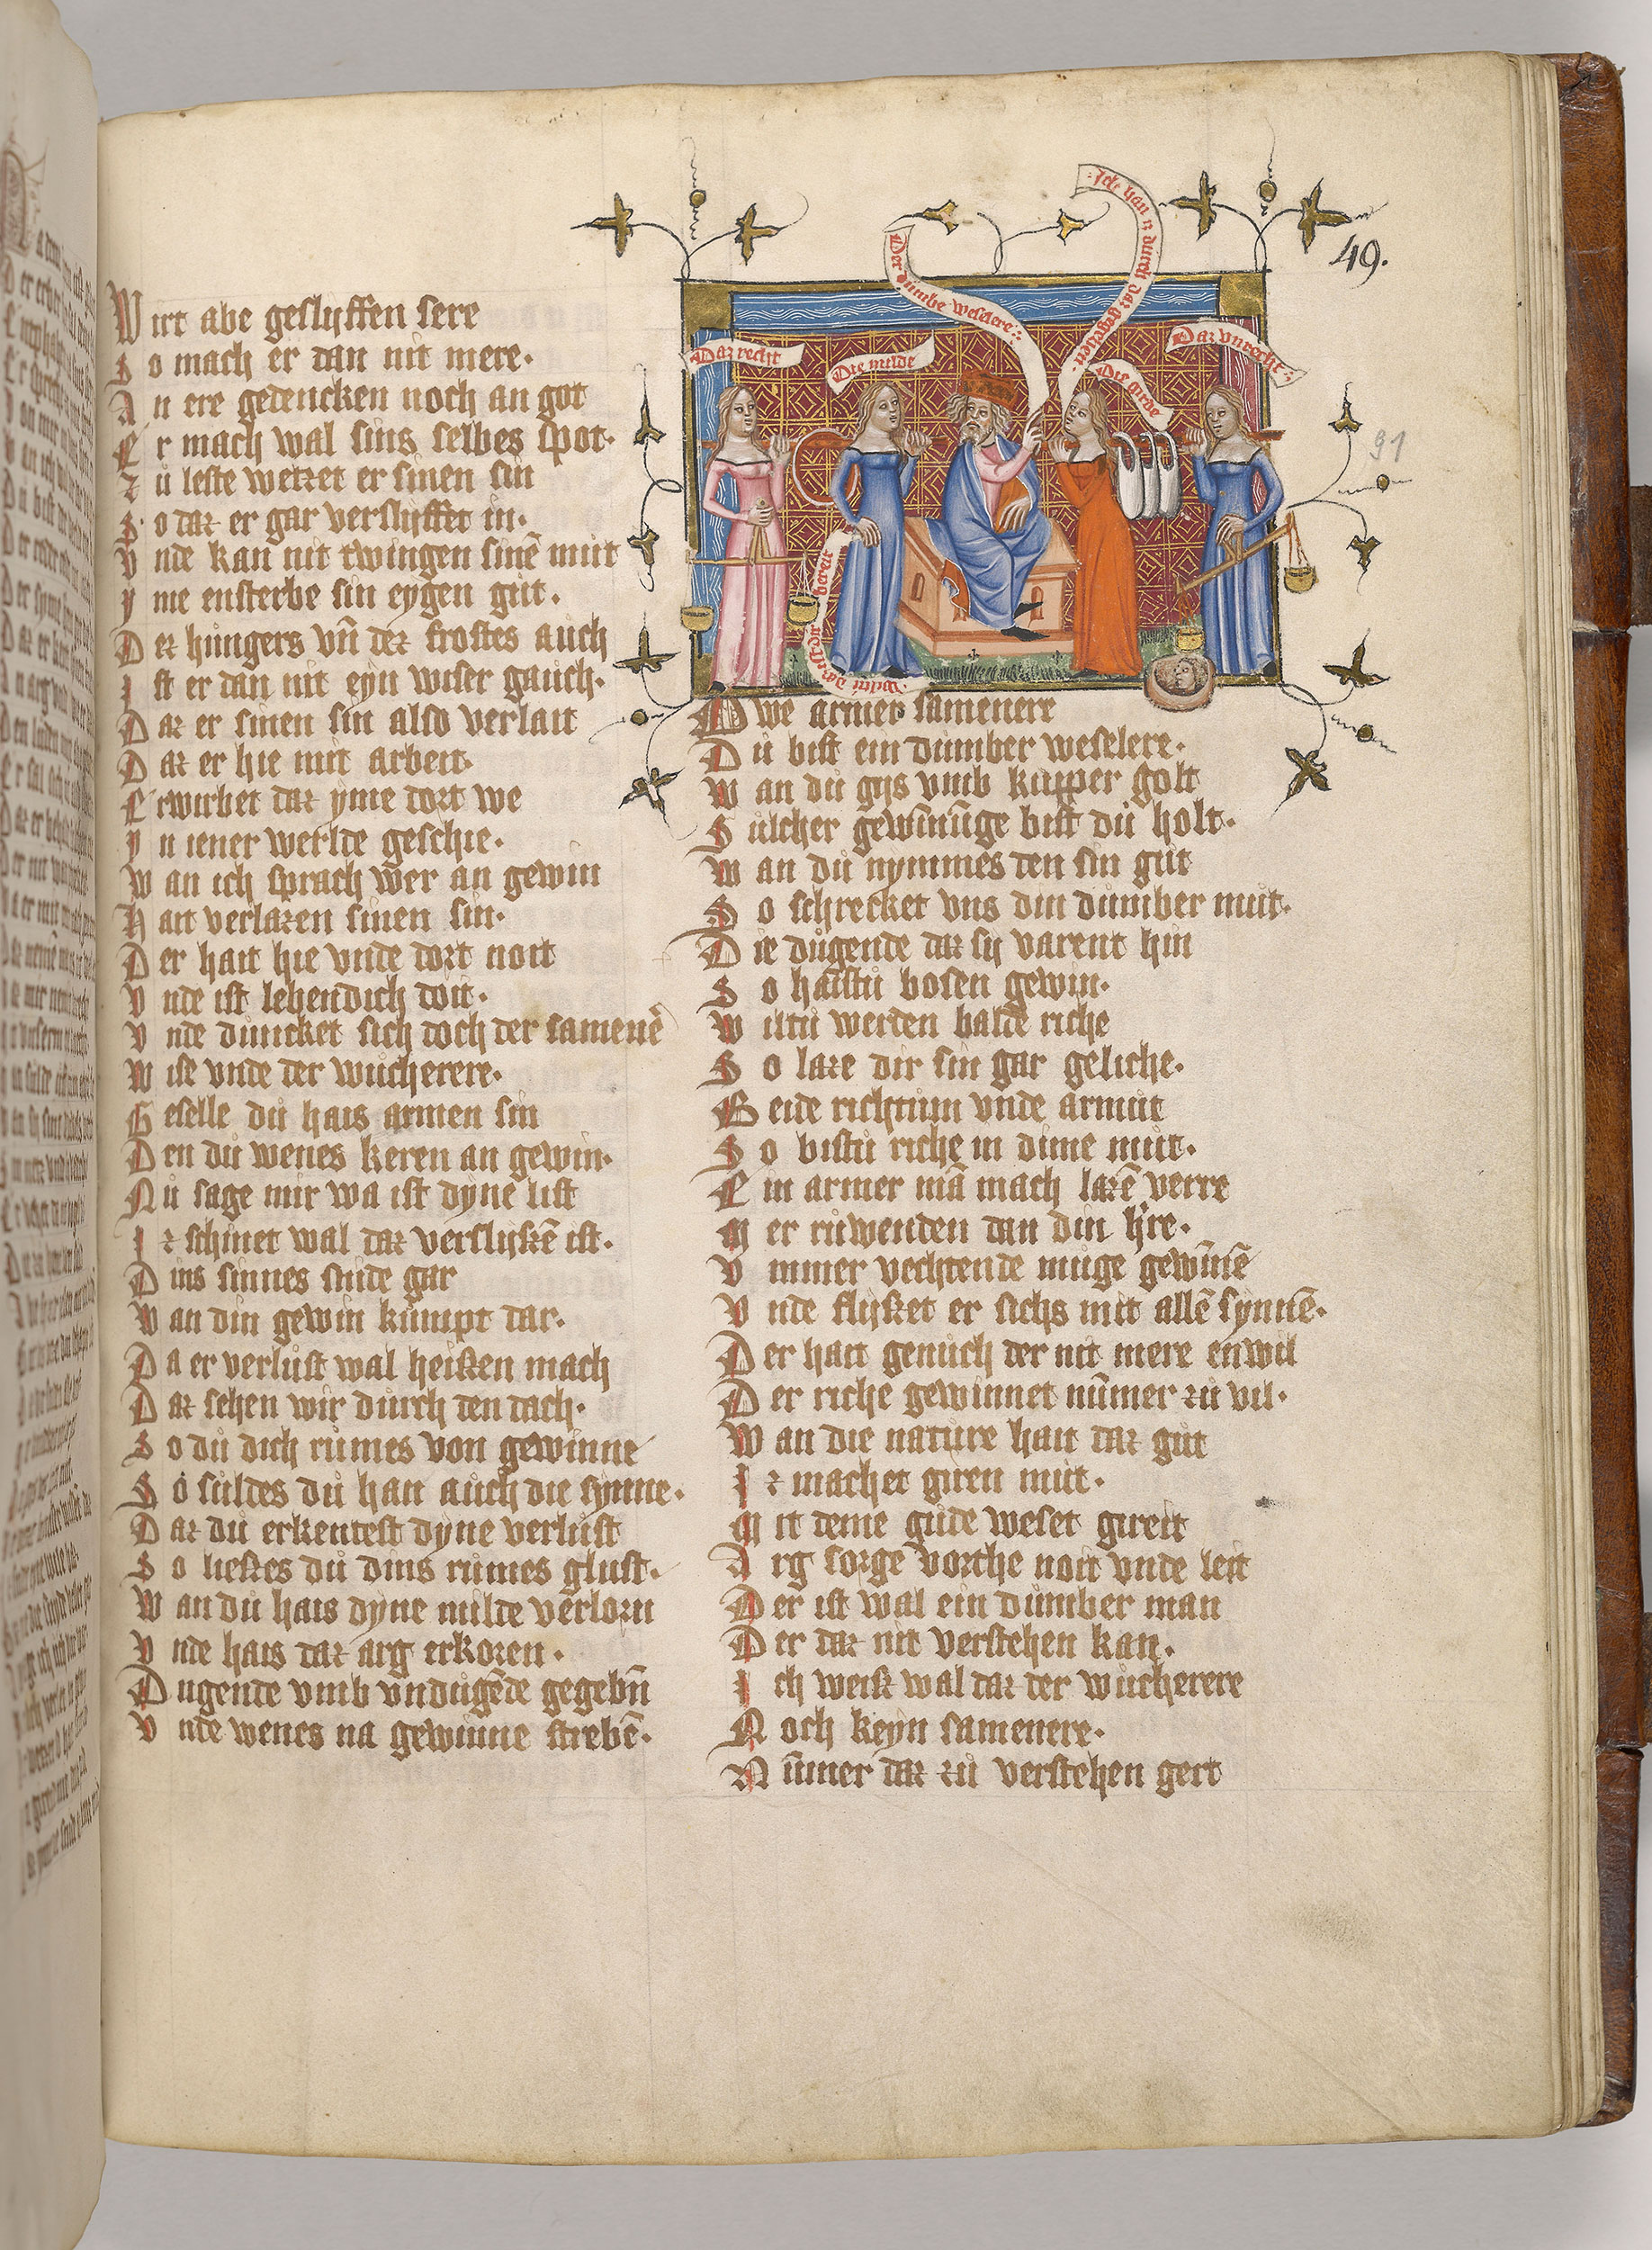 Wirt abe geslyffen sere
So mach er dan nit mere.
An ere gedencken noch an got
Er mach wal sins selbes spot.
zů leste wetzet er sinen sin
So daz er gar verslyffet in.
Vnde kan nit twingen sinē můt
yme ensterbe sin eygen gůt.
Der hůngers vn̄ dez frostes auch
Ist er dan nit eyn wiser gauch.
Daz er sinen sin also verlait
Daz er hie mit arbeit.
Erwirbet daz yme dort we
In iener werlde geschie.
Wan ich sprach wer an gewin
Hait verlazen sinen sin.
Der hait hie vnde dort noit
Vnde ist lebendich doit.
Vnde důncket sich doch der samenē
Wise vnde der wůcherere.
Geselle dů hais armen sin
Den dů wenes keren an gewin.
Nů sage mir wa ist dyne list
Iz schinet wal daz verslyssē ist.
Dins sinnes snide gar
Wan din gewin kůmpt dar.
Da er verlůst wal heissen mach
Daz sehen wir důrch den dach.
So dů dich růmes von gewinne
So sůldes dů han aůch die synne.
Daz dů erkentest dyne verlůst
So liesses dů dins růmes glust.
Wan dů hais dyne milde verlorn
Vnde hais daz arg erkoren.
Dugende vmb vndůgēde gegebn̄
Vnde wenes na gewinne strebē.
49.
91
Ich han iz důrch daz behalden
Der důmbe weselere
Daz recht
Die milde
Die girde
Daz vnrecht
wiltů daz ist dir bereit
Owe armer samenere
Dů bist ein důmber weselere.
Wan dů gijs vmb kupper golt
Sůlcher gewinnůge bist dů holt.
Wan dů nymmes den sin gůt
So schrecket vns din důmber můt.
Die důgende daz sy varent hin
So haistů bosen gewin.
Wiltů werden balde riche
So laze dir sin gar geliche.
Beide richtům vnde armůt
So bistů riche in dime můt.
Ein armer mā mach lazē verre
Mer růwenden dan din h're.
Vmmer vechtende můge gewinnē
Vnde flysset er sichs mit allē synnē.
Der hait genůch der nit mere enwil
Der riche gewinnet nūmer zů vil.
Wan die nature hait daz gůt
Iz machet giren můt.
Mit deme gůde weset gireit
Arg sorge vorthe noit vnde leit
Der ist wal ein důmber man
Der daz nit verstehen kan.
Ich weis wal daz der wůcherere
Noch keyn samenere.
Nūmer daz zů verstehen gert